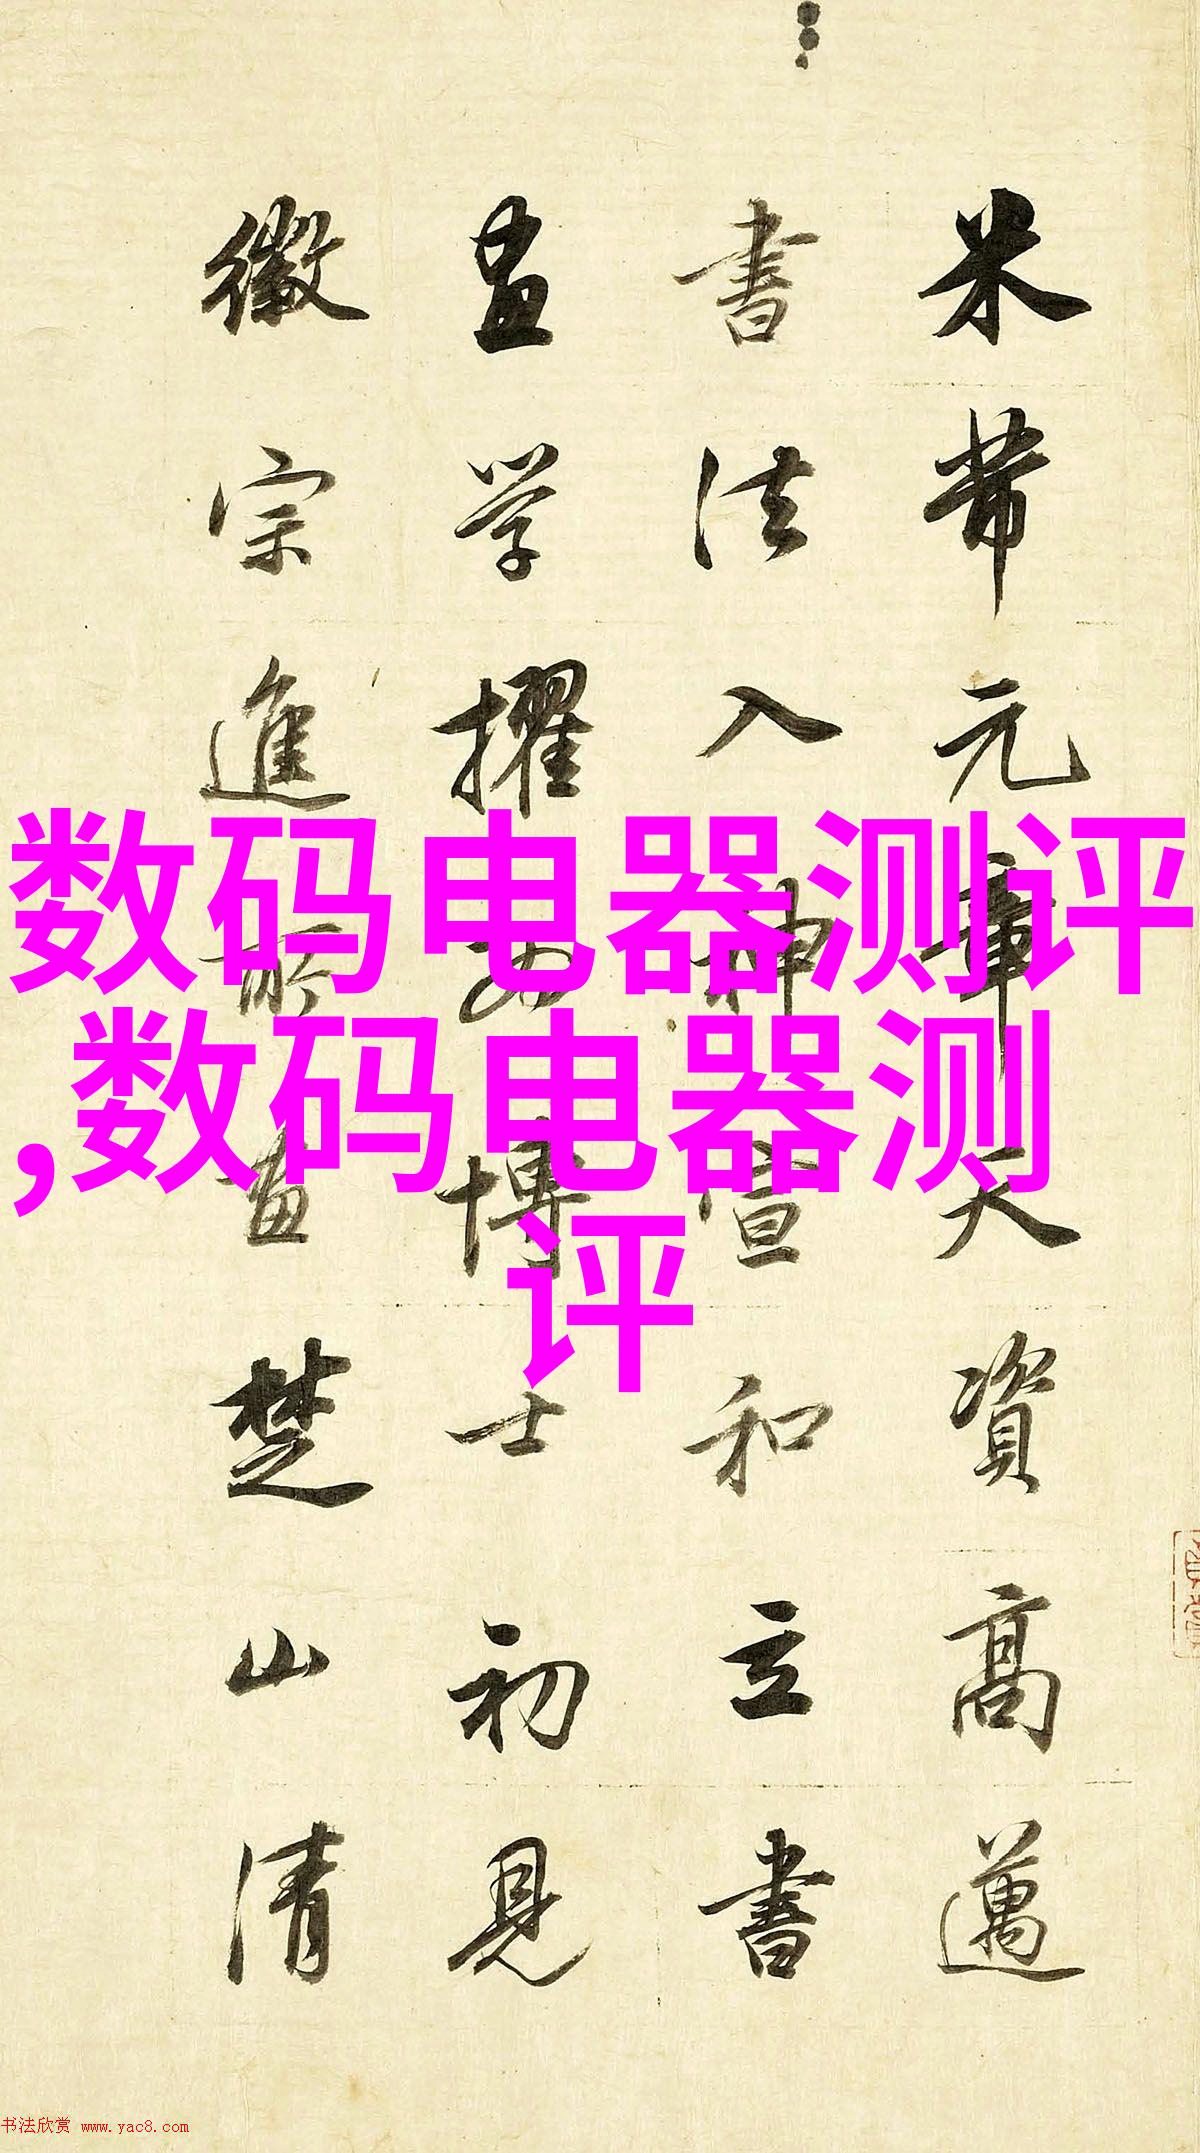 米芾元章天資高邁
書法入神宣和立書
畫学擢為博士初見
徽宗進所畫楚山清
数码电器测评
,数码电器测
评
书法欣赏 www.yac8.com